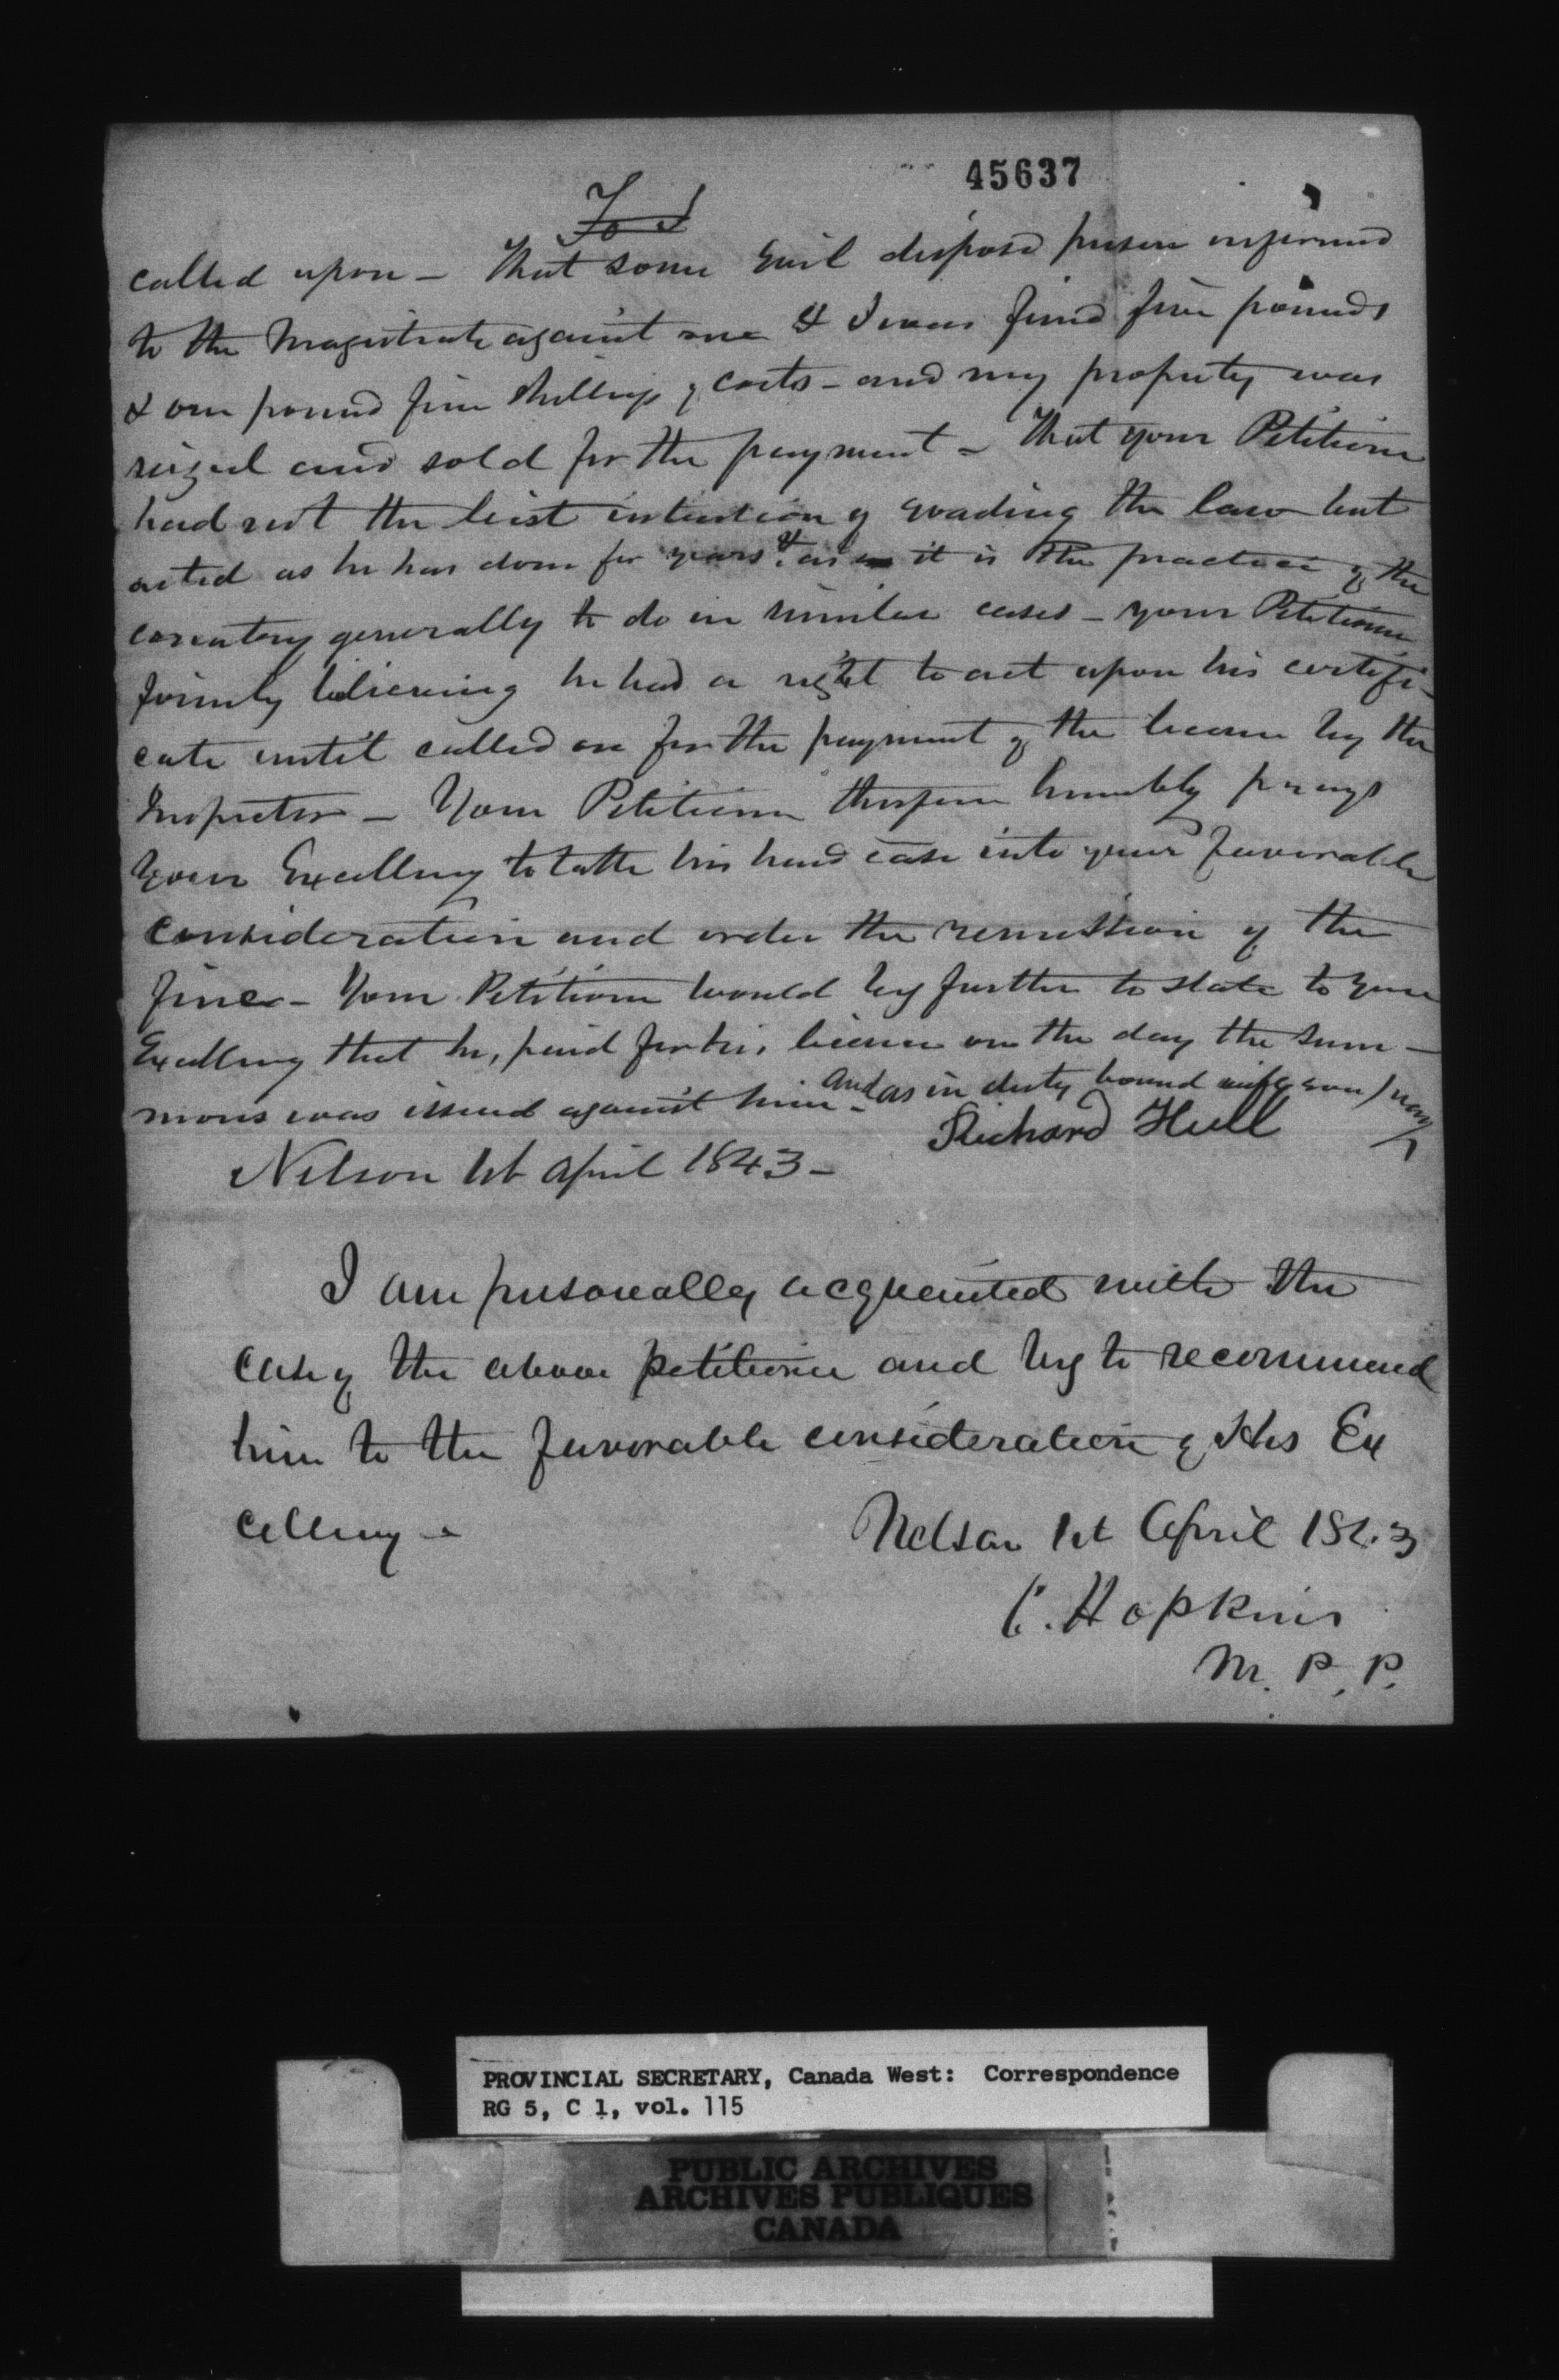 45637
To
called upon – That some Evil disposed person informed
to the Magistrate against me & I was fined five pounds
& one pound five Shillings of costs – and my property was
seized and sold for the payment – That your Petitioner
had not the least intention of evading the law but
acted as he has done for years & as it is the practice of the
country generally to do in similar cases – your Petitioner
firmly believing he had a right to act upon his certifi-
cate until called on for the payment of the license by the
Inspector – Your Petitioner therefore humbly prays
Your Excellency to take his hard case into your favorable
consideration and order the remission of the
fine – Your Petitioner would beg further to state to your
Excellency that he, paid for his license on the day the sum-
mons was issued against him – and as in duty bound will ever pray
Richard Hull
Nelson 1st April 1843 –
I am personally acquainted with the
case of the above petitioner and beg to recommend
him to the favorable consideration of His Ex
cellency –
Nelson 1st April 1843
C. Hopkins
M. P. P.
PROVINCIAL SECRETARY, Canada West: Correspondence
RG 5, C 1, vol. 115
PUBLIC ARCHIVES
ARCHIVES PUBLIQUES
CANADA